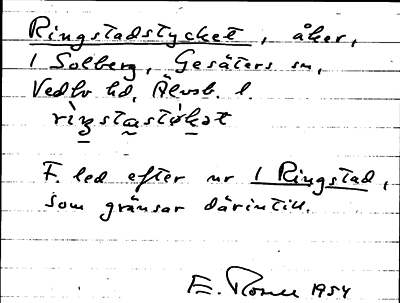 Ringstadstycket, åker,
1 Solberg, Gesäters sn,
Vedbo hd, Älvsb. l.
rìŋstastýkət
F. led efter nr 1 Ringstad,
som gränsar därintill.
E. 1954